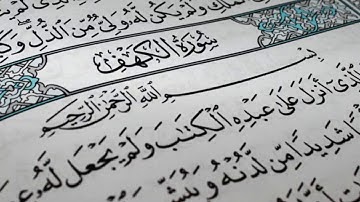 وَلَمْ يَكُن لَّهُۥ وَلِىٌّ مِّنَ ٱلذُّلِّ
سُورَةُ الكَهْفِ
بِسْمِ ٱللَّهِ ٱلرَّحْمَٰنِ ٱلرَّحِيمِ
أَنزَلَ عَلَىٰ عَبْدِهِ ٱلْكِتَٰبَ وَلَمْ يَجْعَل لَّهُۥ
شَدِيدًا مِّن لَّدُنْهُ